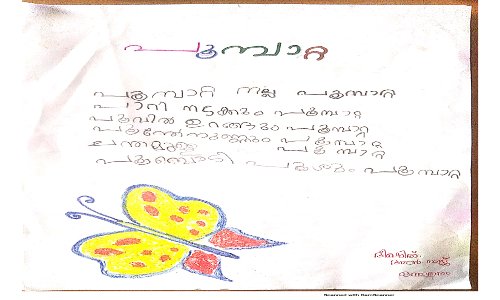 പൂമ്പാറ്റ
പൂമ്പാറ്റ നല്ല പൂമ്പാറ്റ
പാറി നടക്കും പൂമ്പാറ്റ
പൂവിൽ ഉറങ്ങും പൂമ്പാറ്റ
പൂന്തേനുണ്ണും പൂമ്പാറ്റ
ചന്തമുള്ള പൂമ്പാറ്റ
പൂമ്പൊടി പൂശും പൂമ്പാറ്റ
Scanned with OkenScanner